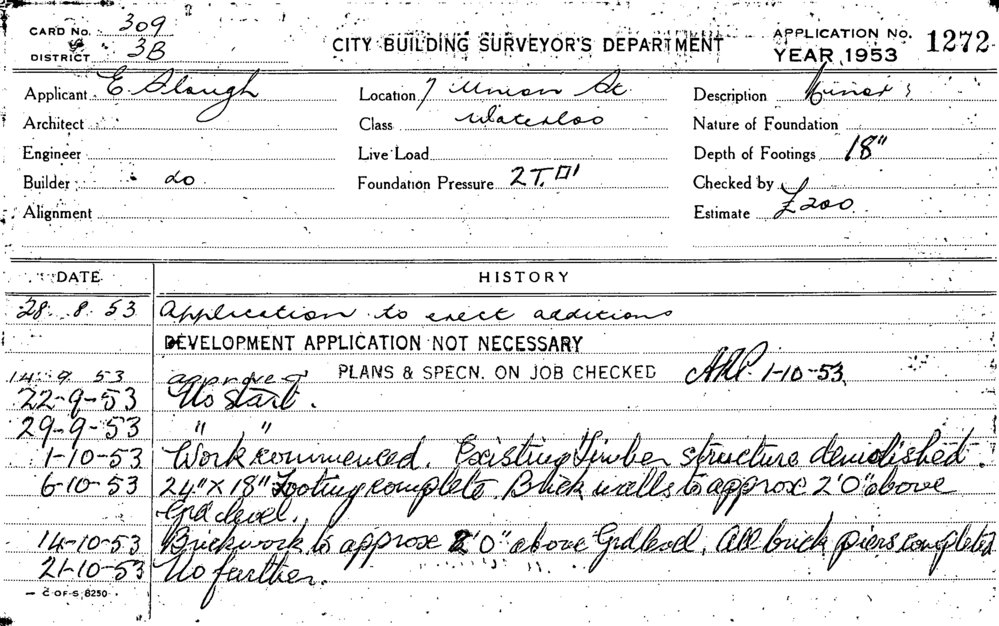 CARD No. 309
DISTRICT 3B
CITY BUILDING SURVEYOR'S DEPARTMENT
APPLICATION No. 1272
YEAR 1953
Applicant E Slough
Location 7 Union St
Description Minor
Architect
Class Waterloo
Nature of Foundation
Engineer
Live Load
Depth of Footings 18"
Builder do
Foundation Pressure 2T.□'
Checked by
Alignment
Estimate £200
DATE HISTORY
28. 8. 53 Application to erect additions
DEVELOPMENT APPLICATION NOT NECESSARY
14. 9. 53 approved PLANS & SPECN. ON JOB CHECKED 1-10-53.
22-9-53 No start.
29-9-53 " "
1-10-53 Work commenced. Existing timber structure demolished.
6-10-53 24" X 18" Footing complete. Brick walls to approx 2'0" above
Grd level.
14-10-53 Brickwork to approx 2'0" above Grd level. All brick piers completed
21-10-53 No further.
C OF S 8250